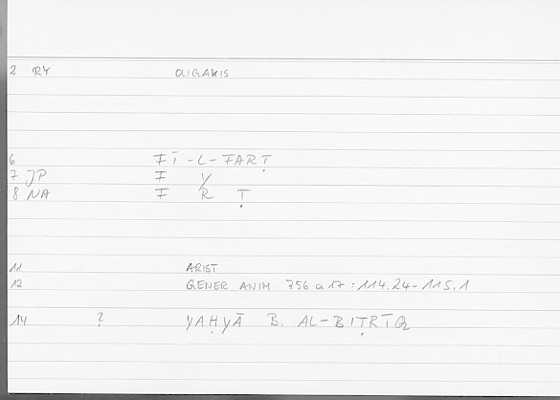 2 RY OLIGAKIS
6 FĪ -L- FARṬ
7 JP F Y
8 NA F R Ṭ
11 ARIST
12 GENER ANIM 756 a 17 : 114.24-115.1
14 ? YAḤYĀ B. AL-BIṬRĪQ